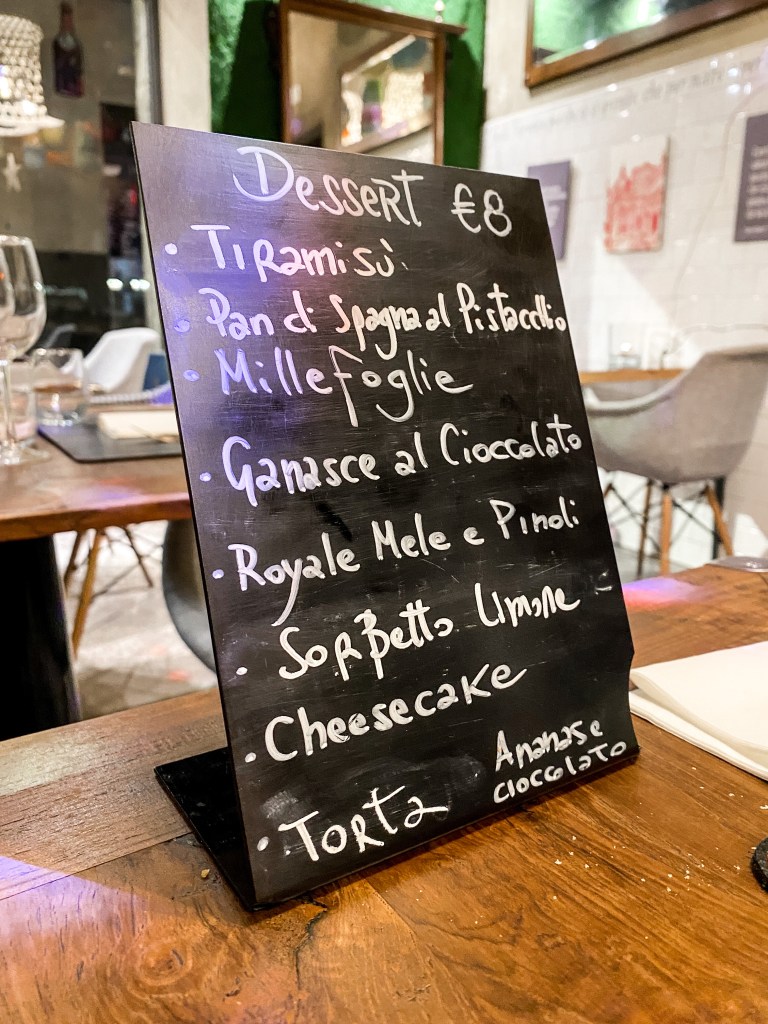 Dessert €8
• Tiramisù
• Pan di Spagna al Pistacchio
• Millefoglie
• Ganasce al Cioccolato
• Royale Mele e Pinoli
• Sorbetto Limone
• Cheesecake
• Torta Ananas e
cioccolato